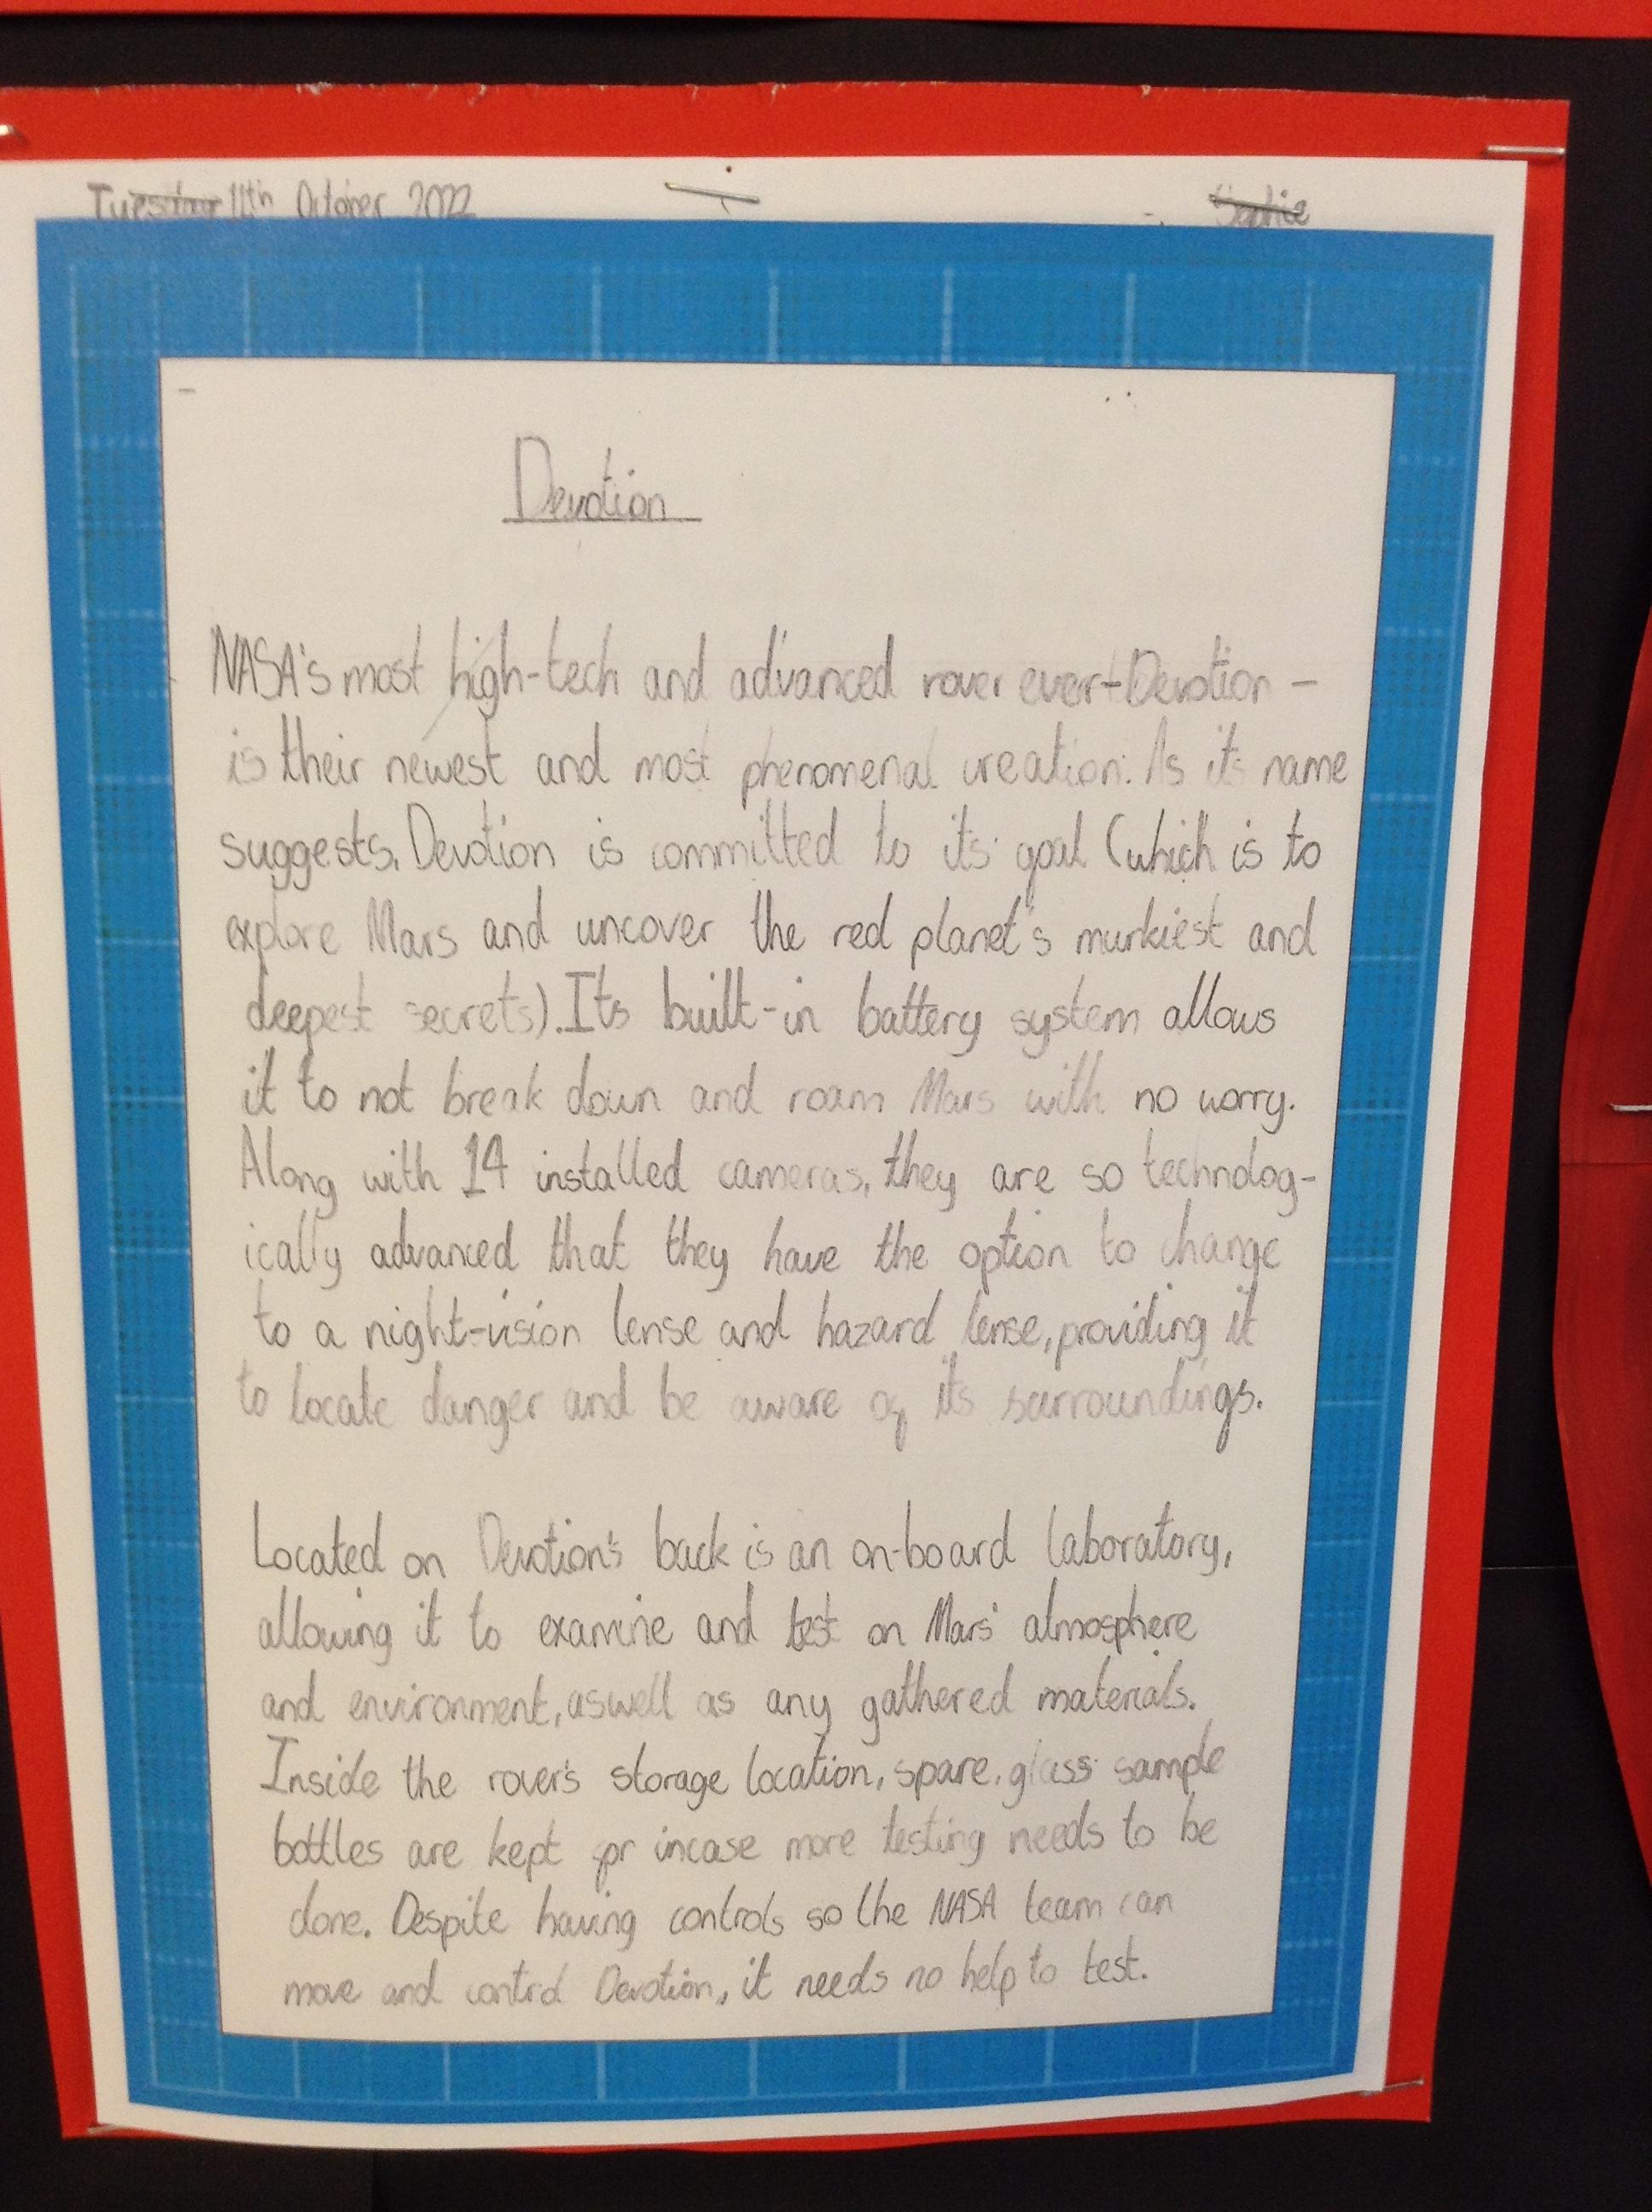 Tuesday 11th October 2022
Sophie
Devotion
NASA's most high-tech and advanced rover ever - Devotion -
is their newest and most phenomenal creation. As its name
suggests, Devotion is committed to its goal (which is to
explore Mars and uncover the red planet's murkiest and
deepest secrets). Its built-in battery system allows
it to not break down and roam Mars with no worry.
Along with 14 installed cameras, they are so technolog-
ically advanced that they have the option to change
to a night-vision lense and hazard lense, providing it
to locate danger and be aware of its surroundings.
Located on Devotion's back is an on-board laboratory,
allowing it to examine and test on Mars' atmosphere
and environment, aswell as any gathered materials.
Inside the rover's storage location, spare, glass sample
bottles are kept for incase more testing needs to be
done. Despite having controls so the NASA team can
move and control Devotion, it needs no help to test.